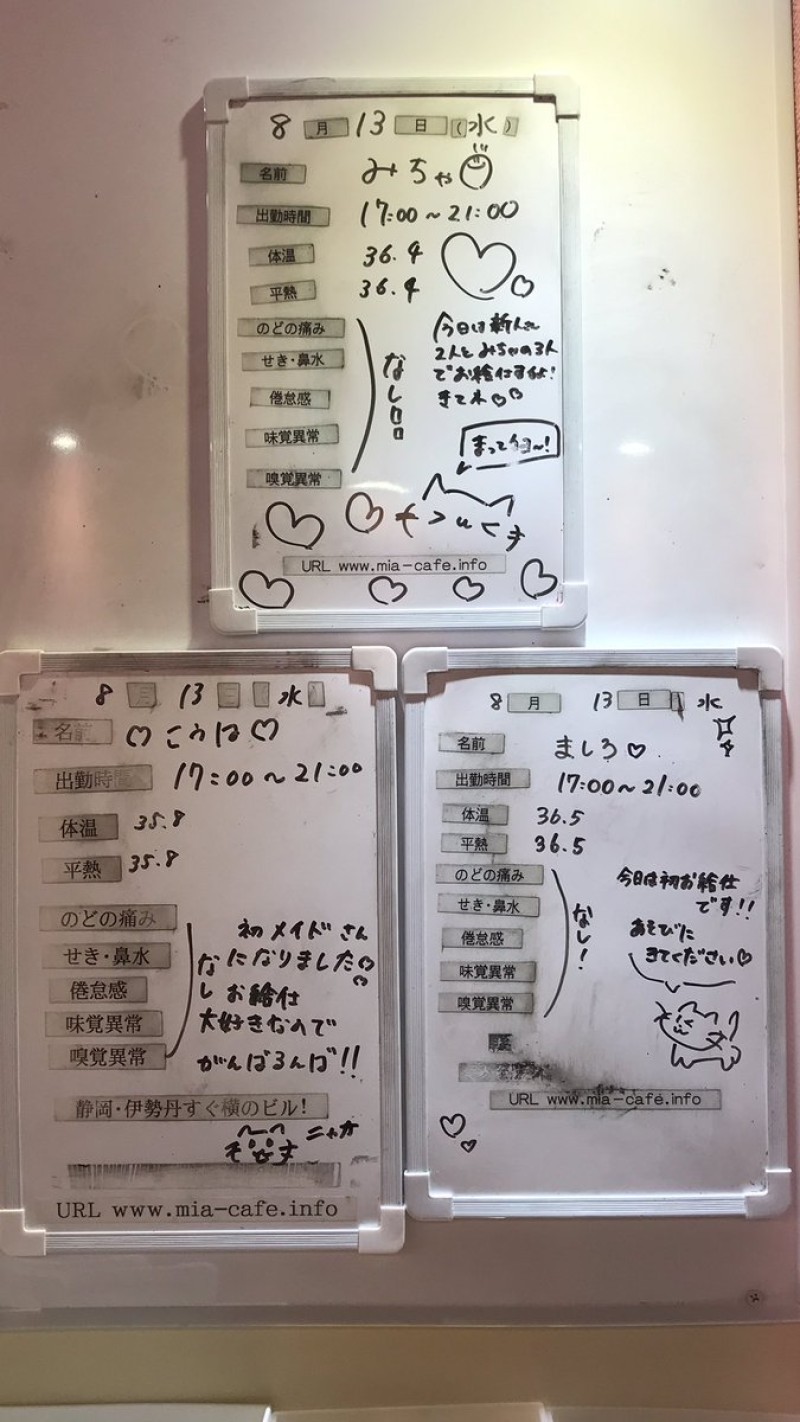 8月13日(水)
名前 みちゃ
出勤時間 17:00~21:00
体温 36.4
平熱 36.4
のどの痛み
せき・鼻水
倦怠感
味覚異常
嗅覚異常
なし
今日は新人さん
2人とみちゃの3人
でお給仕すよ!
きてネ♡♡
まってるヨ~!
URL www.mia-cafe.info
8月13日 水
名前 ♡こうは♡
出勤時間 17:00~21:00
体温 35.8
平熱 35.8
のどの痛み
せき・鼻水
倦怠感
味覚異常
嗅覚異常
なし
初メイドさん
になりました♡
お給仕
大好きなので
がんばるんば!!
静岡・伊勢丹すぐ横のビル!
URL www.mia-cafe.info
8月13日 水
名前 ましろ♡
出勤時間 17:00~21:00
体温 36.5
平熱 36.5
のどの痛み
せき・鼻水
倦怠感
味覚異常
嗅覚異常
なし!
今日は初お給仕
です!!
あそびに
きてください♡
URL www.mia-cafe.info